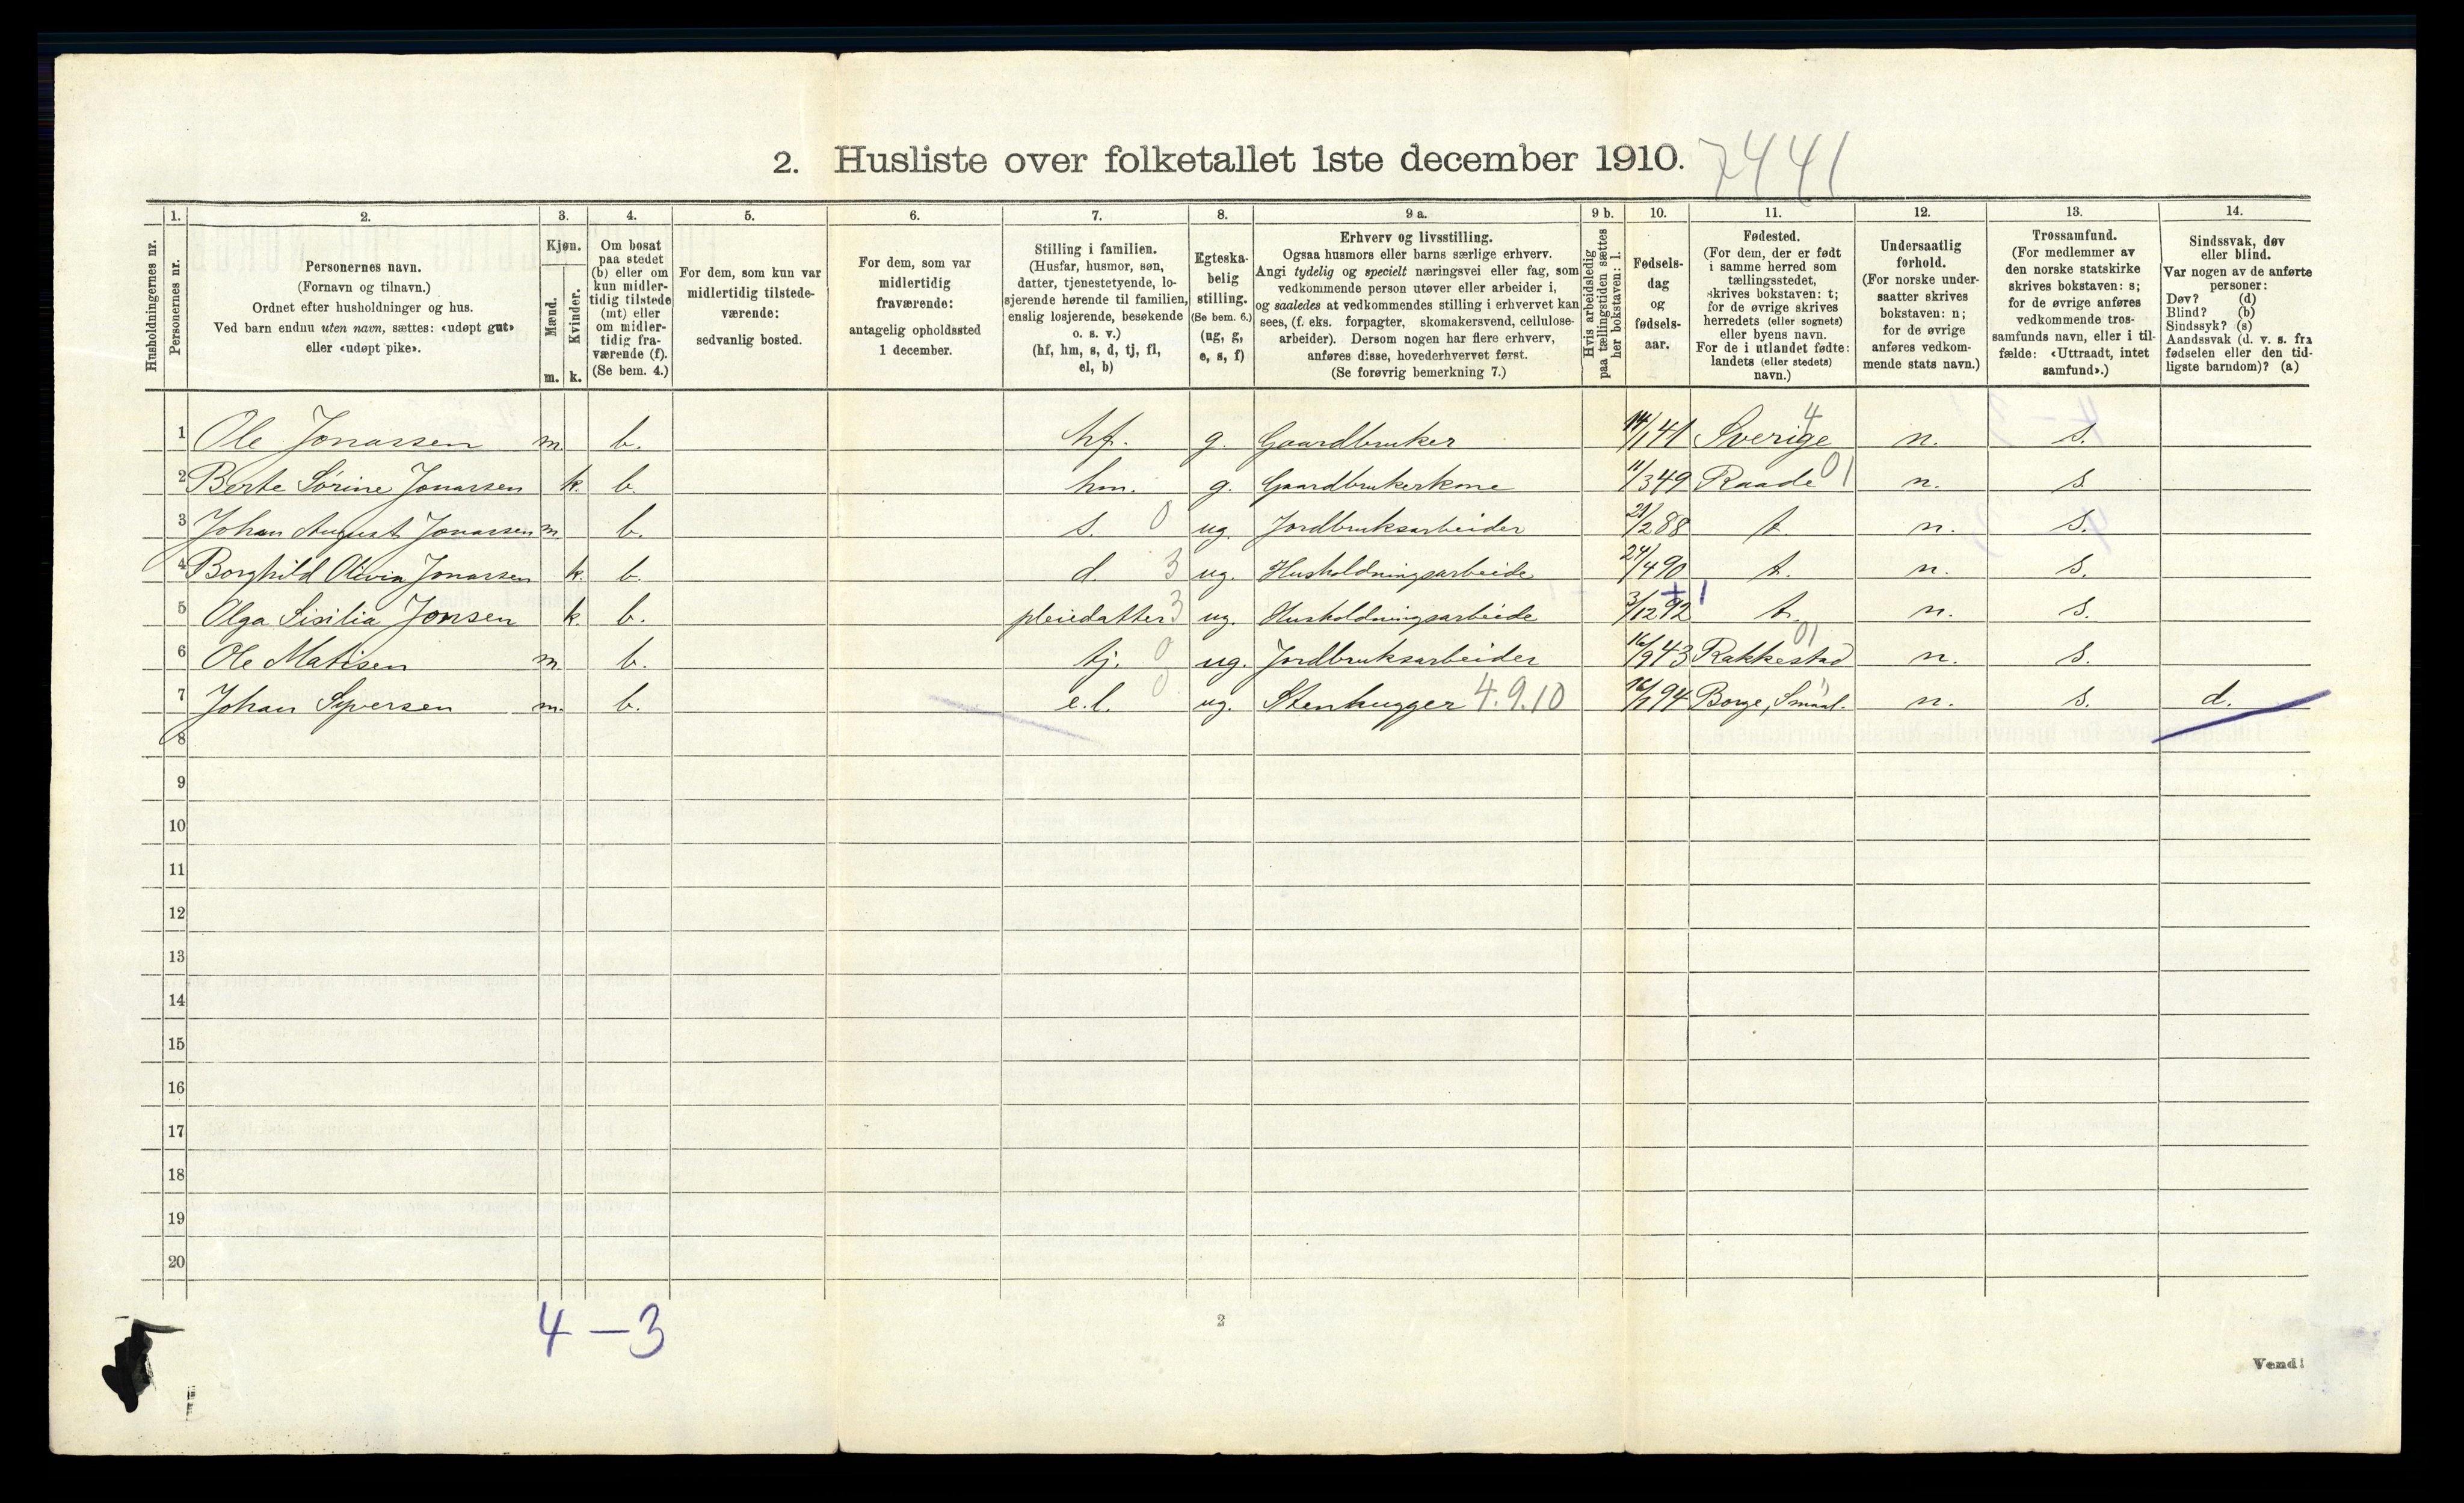 2. Husliste over folketallet 1ste december 1910. 7441
Husholdningernes nr.
1. Personernes nr.
2. Personernes navn.
(Fornavn og tilnavn.)
Ordnet efter husholdninger og hus.
Ved barn endnu uten navn, sættes: «udøpt gut»
eller «udøpt pike».
3. Kjøn.
Mænd. m.
Kvinder. k.
4. Om bosat
paa stedet
(b) eller om
kun midler-
tidig tilstede
(mt) eller
om midler-
tidig fra-
værende (f).
(Se bem. 4.)
5. For dem, som kun var
midlertidig tilstede-
værende:
sedvanlig bosted.
6. For dem, som var
midlertidig
fraværende:
antagelig opholdssted
1 december.
7. Stilling i familien.
(Husfar, husmor, søn,
datter, tjenestetyende, lo-
sjerende hørende til familien,
enslig losjerende, besøkende
o. s. v.)
(hf, hm, s, d, tj, fl,
el, b)
8. Egteska-
belig
stilling.
(Se bem. 6.)
(ug, g,
e, s, f)
9 a. Erhverv og livsstilling.
Ogsaa husmors eller barns særlige erhverv.
Angi tydelig og specielt næringsvei eller fag, som
vedkommende person utøver eller arbeider i,
og saaledes at vedkommendes stilling i erhvervet kan
sees, (f. eks. forpagter, skomakersvend, cellulose-
arbeider). Dersom nogen har flere erhverv,
anføres disse, hovederhvervet først.
(Se forøvrig bemerkning 7.)
9 b. Hvis arbeidsledig
paa tællingstiden sættes
her bokstaven: l.
10. Fødsels-
dag
og
fødsels-
aar.
11. Fødested.
(For dem, der er født
i samme herred som
tællingsstedet,
skrives bokstaven: t;
for de øvrige skrives
herredets (eller sognets)
eller byens navn.
For de i utlandet fødte:
landets (eller stedets)
navn.)
12. Undersaatlig
forhold.
(For norske under-
saatter skrives
bokstaven: n;
for de øvrige
anføres vedkom-
mende stats navn.)
13. Trossamfund.
(For medlemmer av
den norske statskirke
skrives bokstaven: s;
for de øvrige anføres
vedkommende tros-
samfunds navn, eller i til-
fælde: «Uttraadt, intet
samfund».)
14. Sindssvak, døv
eller blind.
Var nogen av de anførte
personer:
Døv? (d)
Blind? (b)
Sindssyk? (s)
Aandssvak (d. v. s. fra
fødselen eller den tid-
ligste barndom)? (a)
1 Ole Jonassen m. b. hf. g. Gaardbruker 14/1 41 Sverige 4 n. s.
2 Berte Sørine Jonassen k. b. hm. g. Gaardbrukerkone 11/3 49 Raade 01 n. s.
3 Johan August Jonassen m. b. s. 0 ug. Jordbruksarbeider 21/2 88 t. n. s.
4 Borghild Olivia Jonassen k. b. d. 3 ug. Husholdningsarbeide 24/4 90 t. n. s.
5 Olga Sisilia Jonsen k. b. pleiedatter 3 ug. Husholdningsarbeide 3/12 92 + 1 t. n. s.
6 Ole Matisen m. b. tj. 0 ug. Jordbruksarbeider 16/9 43 Rakkestad 01 n. s.
7 Johan Syversen m. b. e.l. 0 ug. Stenhugger 4.9.10 94 Borge, Smaal. n. s. d.
8
9
10
11
12
13
14
15
16
17
18
19
20
4 — 3
2
Vend!